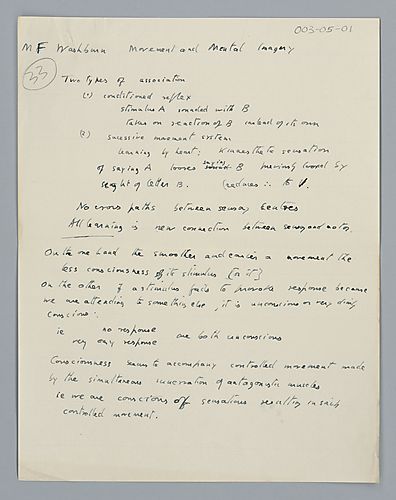 003-05-01
M F Washburn Movement and Mental Imagery
33
Two types of association
(1) conditioned reflex
stimulus A sounded with B
takes on reaction of B instead of its own
(2) sucessive movement system
learning by heart: Kinaesthetic sensation
of saying A looses saying B previously loosed by
sight of letter B. (reduces ∴ to 1.
No cross paths between sensory centres
All learning is new connection between sensory and motor.
On the one hand the smoother and easier a movement the
less consciousness of its stimulus [or it]
On the other if a stimulus fails to provoke response because
we are attending to something else, it is unconscious or very dimly
conscious ∴
ie no response
very easy response are both unconscious
Consciousness seems to accompany controlled movement made
by the simultaneous innervation of antagonistic muscles
ie we are conscious of sensations resulting in such
controlled movement.